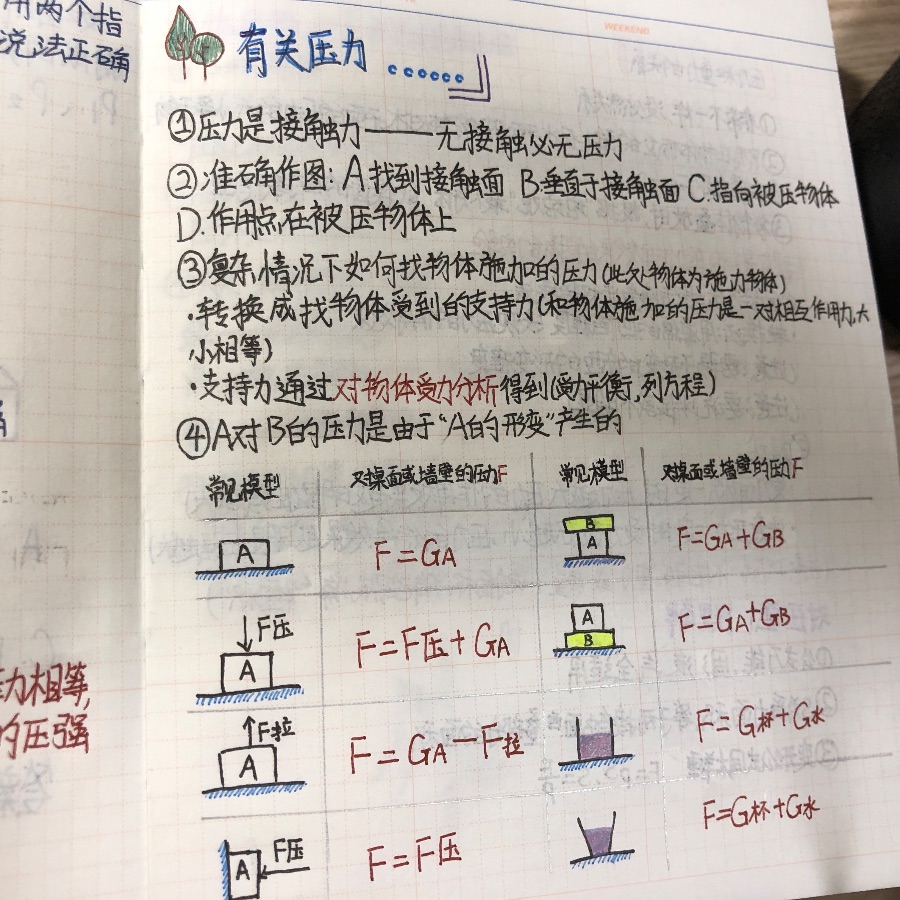 用两个指
说法正确
WEEKEND
有关压力
①压力是接触力——无接触必无压力
②准确作图:A.找到接触面 B.垂直于接触面 C.指向被压物体
D.作用点在被压物体上
③复杂情况下如何找物体施加的压力(此处物体为施力物体)
·转换成找物体受到的支持力(和物体施加的压力是一对相互作用力,大
小相等)
·支持力通过对物体受力分析得到(受力平衡,列方程)
④A对B的压力是由于“A的形变”产生的
常见模型 对桌面或墙壁的压力F 常见模型 对桌面或墙壁的压力F
A F=GA B A F=GA+GB
F压 A F=F压+GA A B F=GA+GB
F拉 A F=GA-F拉 F=G杯+G水
A F压 F=F压 F=G杯+G水
力相等,
的压强